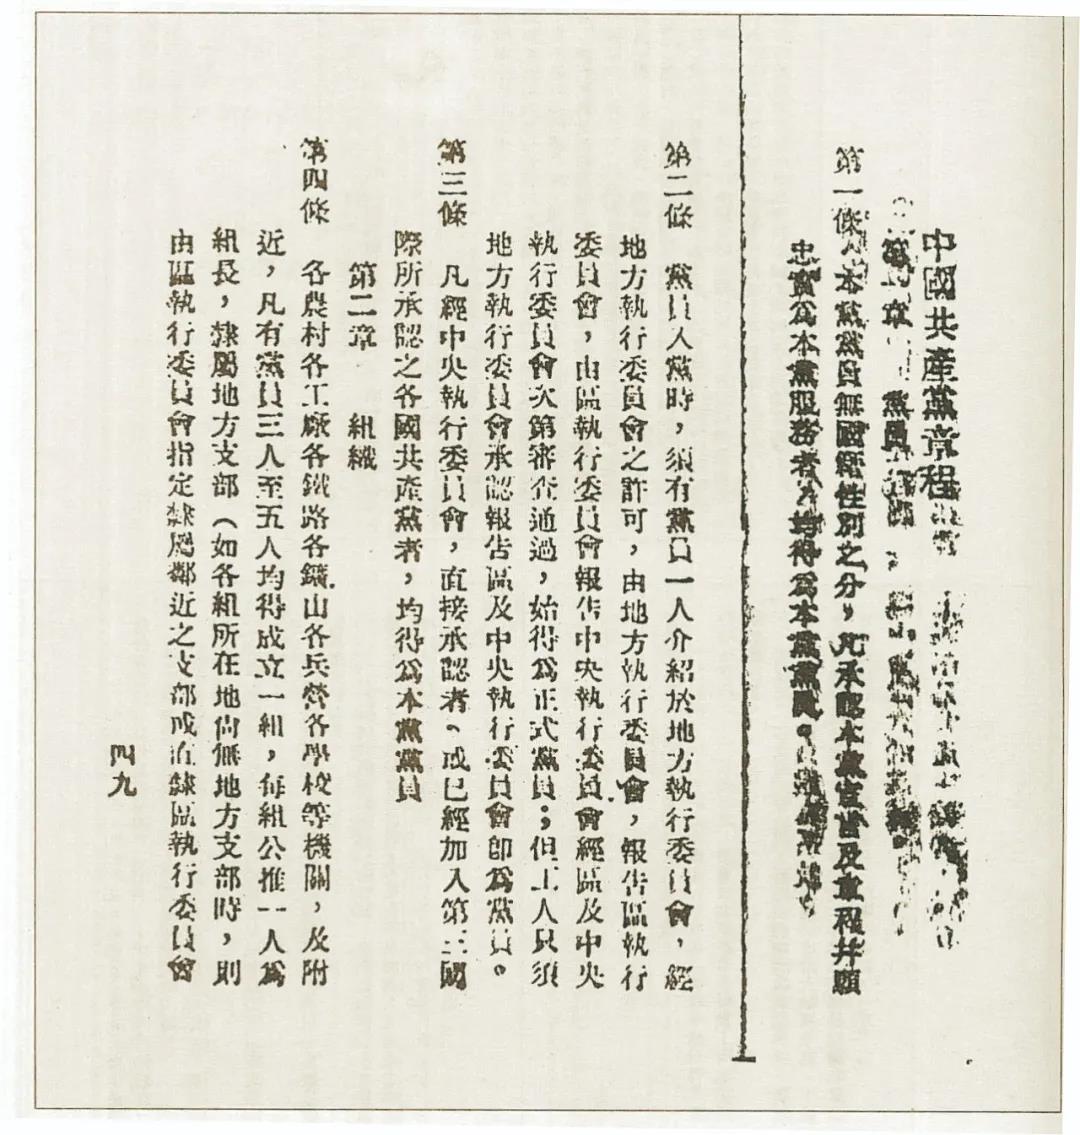 中國共產黨章程
第一條 本黨黨員無國籍性別之分，凡承認本黨宣言及章程并願
忠實為本黨服務者，均得為本黨黨員。
第二條 黨員入黨時，須有黨員一人介紹於地方執行委員會，經
地方執行委員會之許可，由地方執行委員會，報告區執行
委員會，由區執行委員會報告中央執行委員會經區及中央
執行委員會次第審查通過，始得為正式黨員；但工人只須
地方執行委員會承認報告區及中央執行委員會即為黨員。
第三條 凡經中央執行委員會，直接承認者、或已經加入第三國
際所承認之各國共產黨者，均得為本黨黨員
第二章 組織
第四條 各農村各工廠各鐵路各鑛山各兵營各學校等機關，及附
近，凡有黨員三人至五人均得成立一組，每組公推一人為
組長，隸屬地方支部（如各組所在地尚無地方支部時，則
由區執行委員會指定隸屬鄰近之支部或直隸區執行委員會
四九